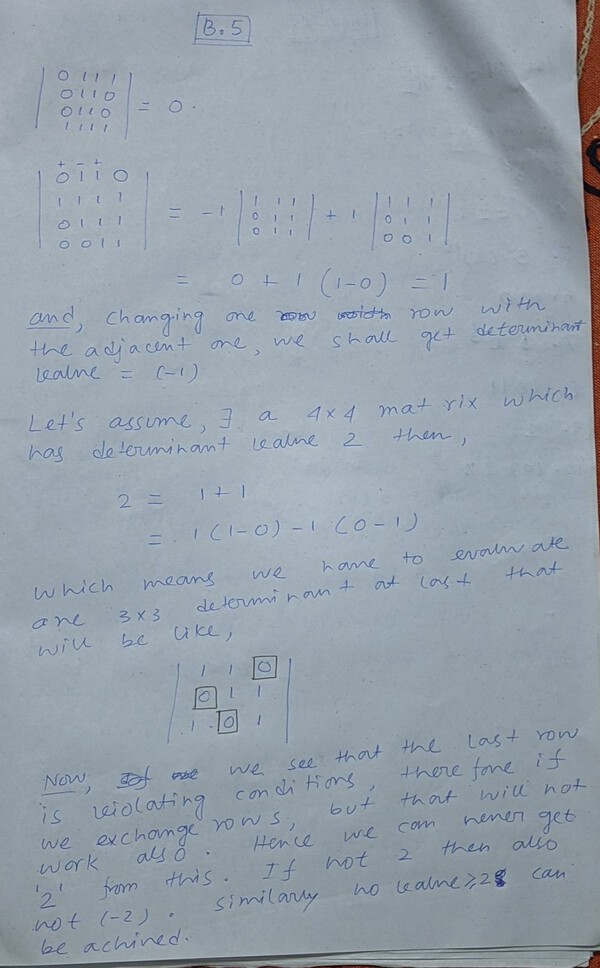 B.5
| 0 1 1 1 |
| 0 1 1 0 |
| 0 1 1 0 | = 0.
| 1 1 1 1 |
+ - +
| 0 1 1 0 |
| 1 1 1 1 | = -1 | 1 1 1 | + 1 | 1 1 1 |
| 0 1 1 1 | | 0 1 1 | | 0 1 1 |
| 0 0 1 1 | | 0 1 1 | | 0 0 1 |
= 0 + 1 (1-0) = 1
and, changing one row with
the adjacent one, we shall get determinant
value = (-1)
Let's assume, ∃ a 4×4 matrix which
has determinant value 2 then,
2 = 1+1
= 1(1-0) -1 (0-1)
which means we have to evaluate
one 3×3 determinant at last that
will be like,
| 1 1 0 |
| 0 1 1 |
| 1 0 1 |
Now, we see that the last row
is violating conditions, therefore if
we exchange rows, but that will not
work also. Hence we can never get
'2' from this. If not 2 then also
not (-2). Similarly no value ≥2 can
be achined.